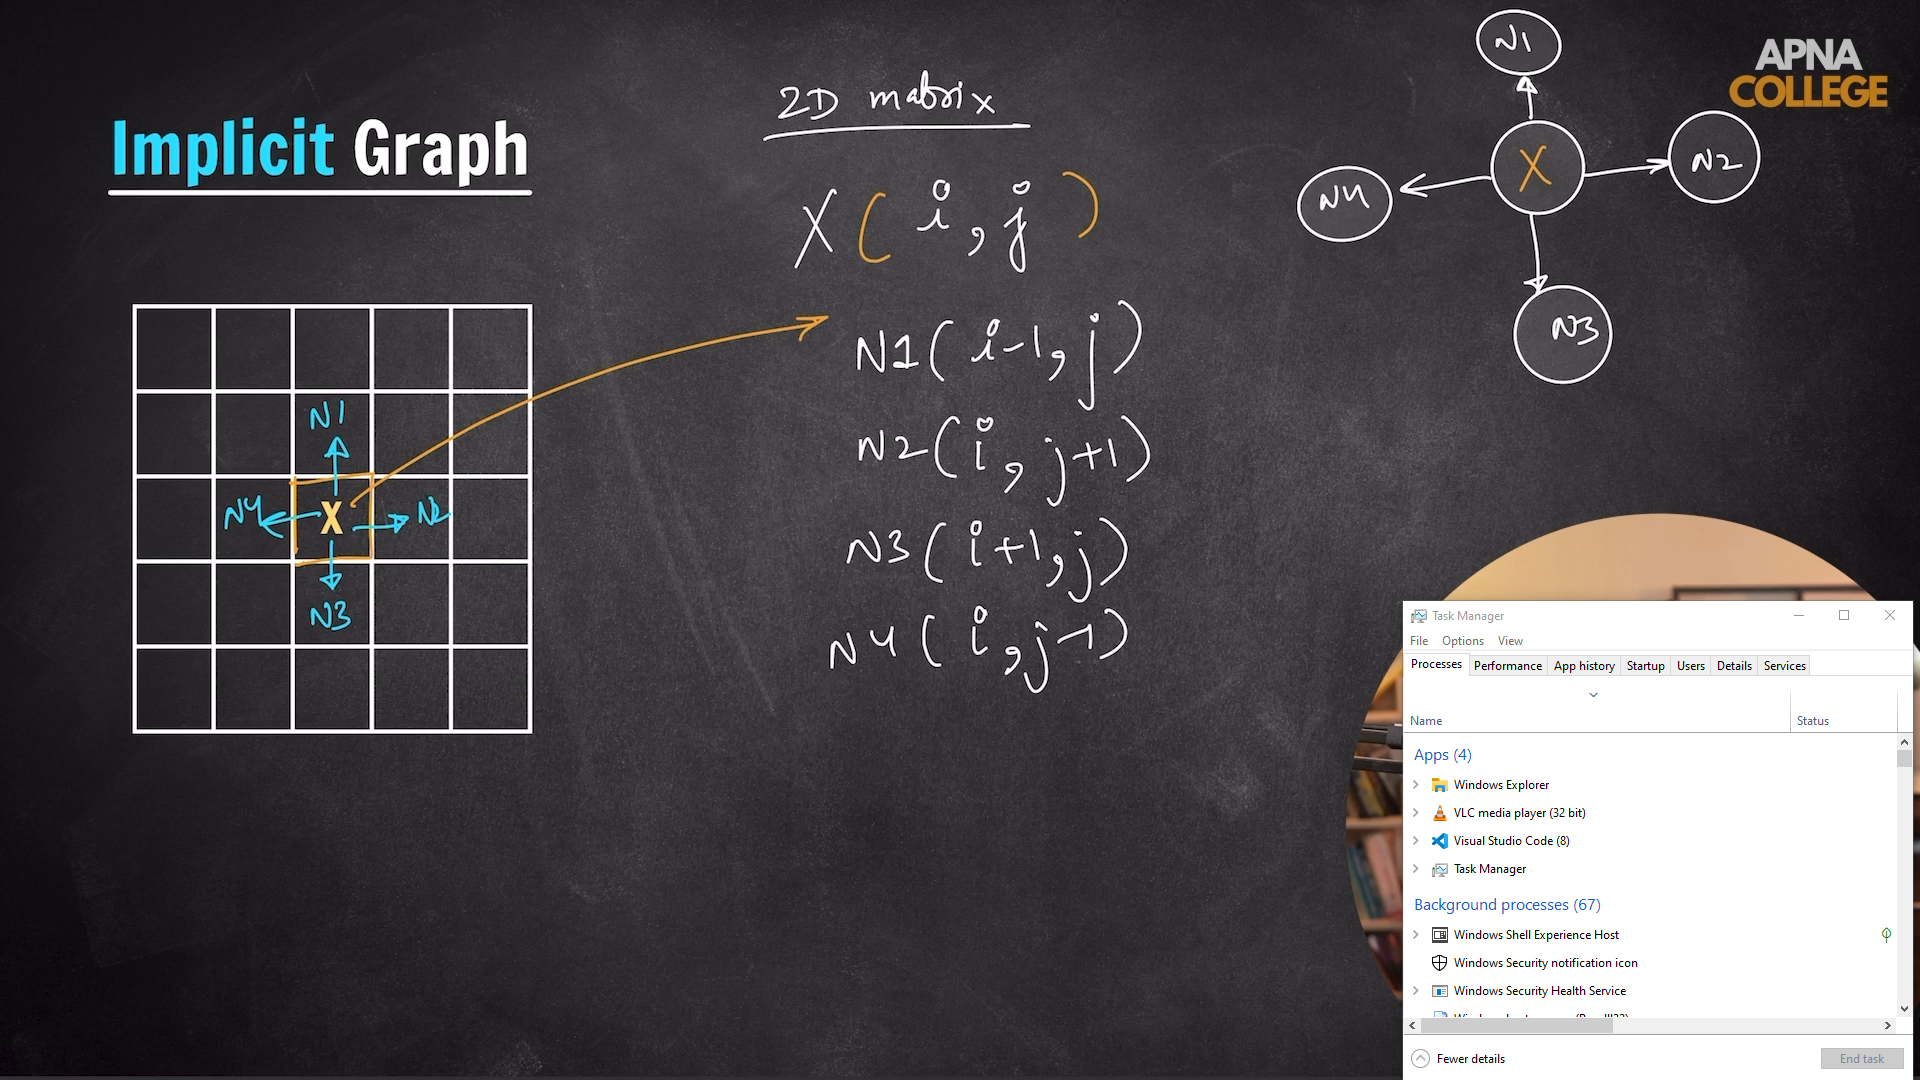 APNA
COLLEGE
Implicit Graph
2D matrix
X ( i , j )
N1 ( i-1, j )
N2 ( i , j+1 )
N3 ( i+1, j )
N4 ( i , j-1 )
N1
N4 X N2
N3
N1
N4 X N2
N3
Task Manager
File Options View
Processes Performance App history Startup Users Details Services
Name Status
Apps (4)
Windows Explorer
VLC media player (32 bit)
Visual Studio Code (8)
Task Manager
Background processes (67)
Windows Shell Experience Host
Windows Security notification icon
Windows Security Health Service
Fewer details End task